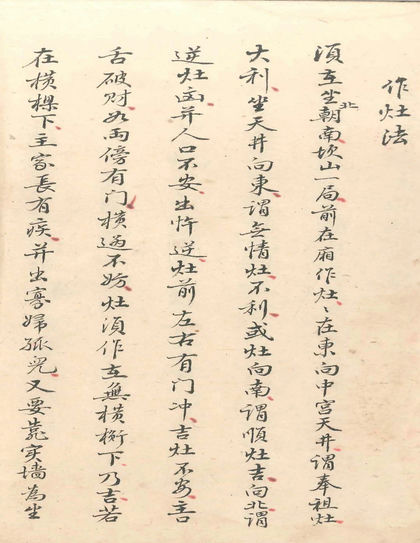 作灶法
須立坐北朝南坎山一局前在廂作灶、在東向中宫天井謂奉祖灶
大利坐天井向東謂無情灶不利或灶向南謂順灶吉向北謂
逆灶凶并人口不安出忤逆灶前左右有门冲吉灶不安言
舌破财如两傍有门横過不妨灶須作立無横桁下乃吉若
在横樑下主家長有疾并出寡婦孤兒又要靠实墙為坐